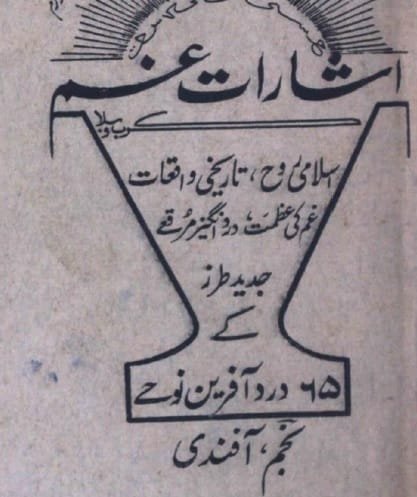 اشارات غم
کرب و بلا
اسلامی روح، تاریخی واقعات
غم کی عظمت، درد انگیز مرقعے
جدید طرز
کے
۶۵ درد آفرین نوحے
نجم، آفندی